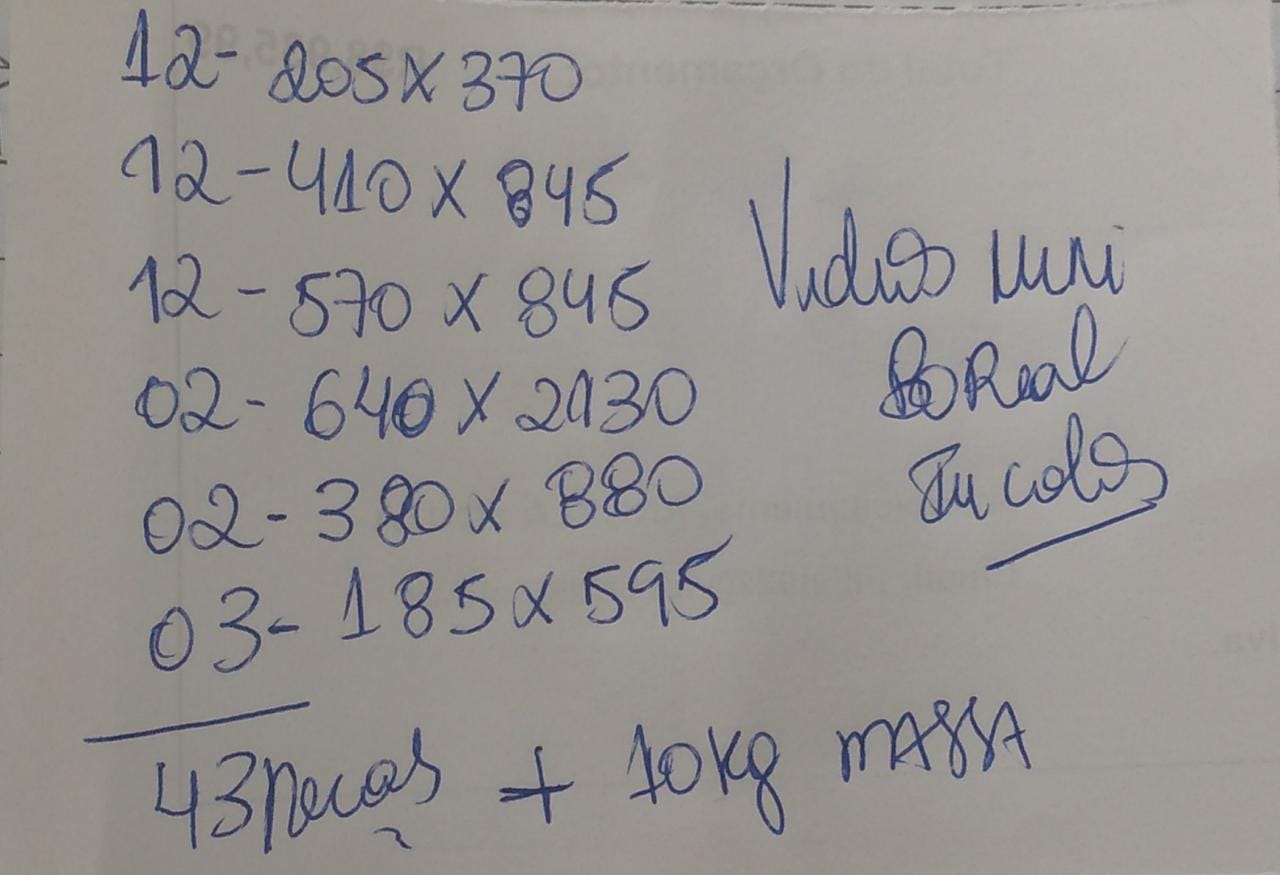 12- 205 X 370
12 - 410 X 845
12 - 570 X 845
02 - 640 X 2130
02 - 380 X 880
03 - 185 X 595
43 Peças + 10 kg MASSA
Vidros Mini
BOReal
Incolor